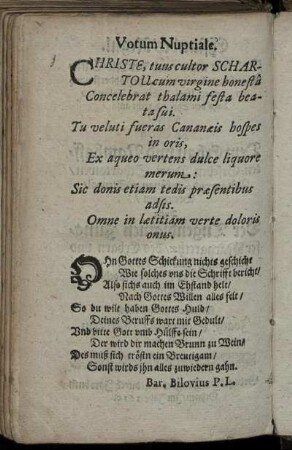 Votum Nuptiale.
CHRISTE, tuus cultor SCHAR-
TOU cum virgine honestâ
Concelebrat thalami festa bea-
ta sui.
Tu veluti fueras Cananæis hospes
in oris,
Ex aqueo vertens dulce liquore
merum:
Sic donis etiam tedis præsentibus
adsis.
Omne in lætitiam verte doloris
onus.
OHn Gottes Schickung nichts geschicht
Wie solches vns die Schrifft bericht/
Also sichs auch im Ehstand helt/
Nach Gottes Willen alles felt/
So du wilt haben Gottes Huld/
Deines Beruffs wart mit Gedult/
Vnd bitte Gott vmb Hülffe sein/
Der wird dir machen Brunn zu Wein/
Des muß sich trösten ein Breutigam/
Sonst wirds jhn alles zuwiedern gahn.
Bar. Bilovius P. L.